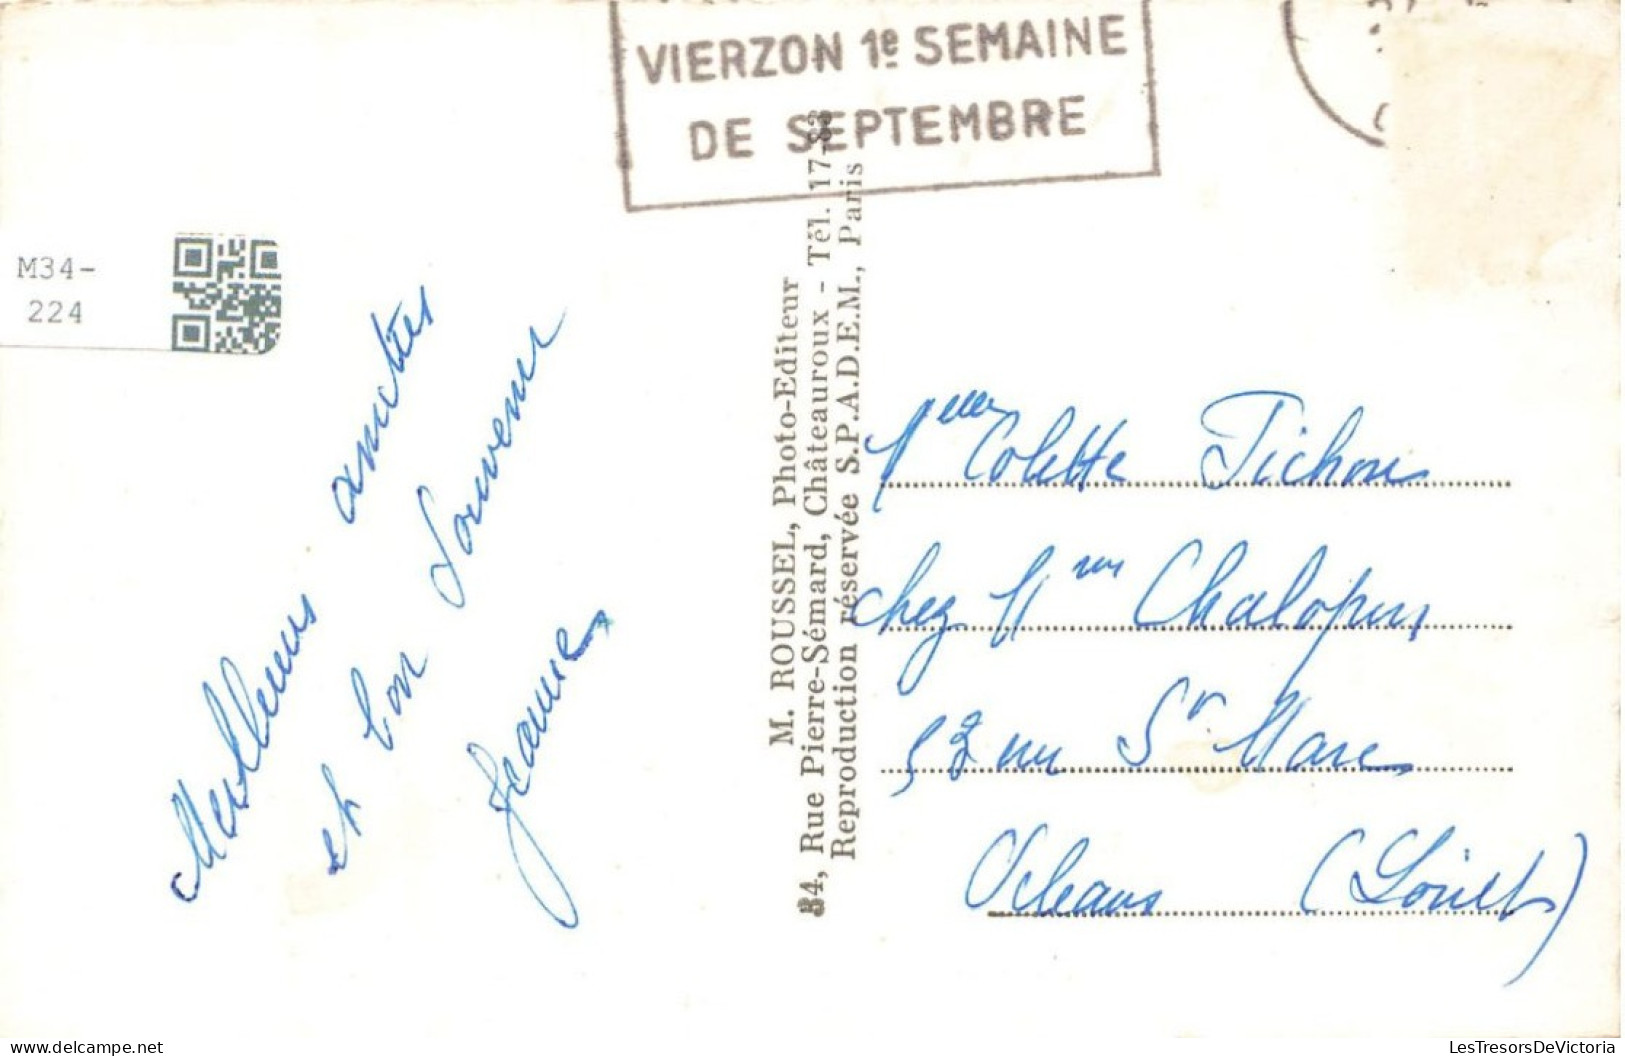 VIERZON 1e SEMAINE
DE SEPTEMBRE
M34-
224
Meilleures amitiés
et bon souvenir
Jeanine
M. ROUSSEL, Photo-Editeur
84, Rue Pierre-Sémard, Châteauroux - Tél. 17-83
Reproduction réservée S.P.A.D.E.M., Paris
Colette Pichon
chez Mme Chalopin
52 rue St Marc
Orléans (Loiret)
LesTresorsDeVictoria.com